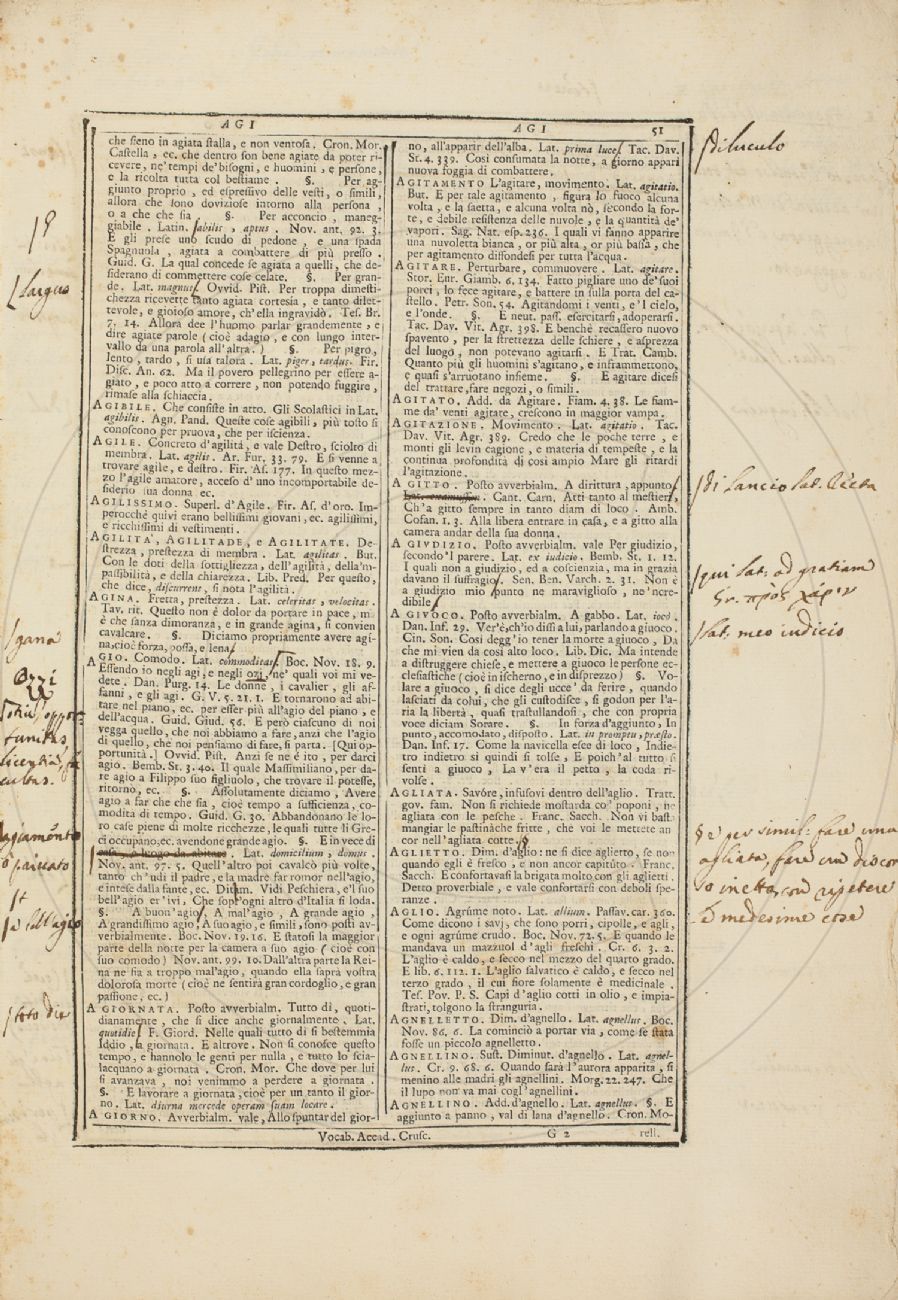 AGI
che sieno in agiata stalla, e non ventosa. Cron. Mor.
Castella, ec. che dentro son bene agiate da poter ri-
cevere, ne' tempi de' bisogni, e huomini, e persone,
e la ricolta tutta col bestiame. §. Per ag-
giunto proprio, ed espressivo delle vesti, o simili,
allora che sono doviziose intorno alla persona,
o a che che sia. §. Per acconcio, maneg-
giabile. Latin. habilis, aptus. Nov. ant. 92. 3.
E gli prese uno scudo di pedone, e una spada
Spagnuola, agiata a combattere di più presso.
Guid. G. La qual concede se agiata a quelli, che de-
siderano di commettere cose celate. §. Per gran-
de. Lat. magnus. Ovvid. Pist. Per troppa dimesti-
chezza ricevette tanto agiata cortesia, e tanto dilet-
tevole, e gioioso amore, ch'ella ingravidò. Tes. Br.
7. 14. Allora dee l'huomo parlar grandemente, e
dire agiate parole (cioè adagio, e con lungo inter-
vallo da una parola all'altra.) §. Per pigro,
lento, tardo, si usa talora. Lat. piger, tardus. Fir.
Disc. An. 62. Ma il povero pellegrino per essere a-
giato, e poco atto a correre, non potendo fuggire,
rimase alla schiaccia.
AGIBILE. Che consiste in atto. Gli Scolastici in Lat.
agibilis. Agn. Pand. Queste cose agibili, più tosto si
conoscono per pruova, che per iscienza.
AGILE. Concreto d'agilità, e vale Destro, sciolto di
membra. Lat. agilis. Ar. Fur. 33. 79. E si venne a
trovare agile, e destro. Fir. As. 177. In questo mez-
zo l'agile amatore, acceso d'uno incomportabile de-
siderio sua donna ec.
AGILISSIMO. Superl. d'Agile. Fir. As. d'oro. Im-
perocchè quivi erano bellissimi giovani, ec. agilissimi,
e ricchissimi di vestimenti.
AGILITA', AGILITADE, e AGILITATE. De-
strezza, prestezza di membra. Lat. agilitas. But.
Con le doti della sottigliezza, dell'agilità, della'm-
passibilità, e della chiarezza. Lib. Pred. Per questo,
che dice, discurrent, si nota l'agilità.
AGINA. Fretta, prestezza. Lat. celeritas, velocitas.
Tav. rit. Questo non è dolor da portare in pace, m.
è che sanza dimoranza, e in grande agina, si convien
cavalcare. §. Diciamo propriamente avere agi-
na, cioè forza, possa, e lena.
AGIO. Comodo. Lat. commoditas. Boc. Nov. 18. 9.
Essendo io negli agi, e negli ozj, ne' quali voi mi ve-
dete. Dan. Purg. 14. Le donne, i cavalier, gli af-
fanni, e gli agi. G. V. 5. 21. 1. E tornarono ad abi-
tare nel piano, ec. per esser più all'agio del piano, e
dell'acqua. Guid. Giud. 56. E però ciascuno di noi
vegga quello, che noi abbiamo a fare, anzi che l'agio
di quello, che noi pensiamo di fare, si parta. [Qui op-
portunità.] Ovvid. Pist. Anzi se ne è ito, per darci
agio. Bemb. St. 3. 40. Il quale Massimiliano, per da-
re agio a Filippo suo figliuolo, che trovare il potesse,
ritorno, ec. §. Assolutamente diciamo, Avere
agio a far che che sia, cioè tempo a sufficienza, co-
modità di tempo. Guid. G. 30. Abbandonano le lo-
ro case piene di molte ricchezze, le quali tutte li Gre-
ci occupano, ec. avendone grande agio. §. E in vece di
Lat. domicilium, domus.
Nov. ant. 97. 5. Quell'altro poi cavalcò più volte,
tanto ch'udì il padre, e la madre far romor nell'agio,
e intese dalla fante, ec. Dittam. Vidi Peschiera, e'l suo
bell'agio er'ivi, Che sopr'ogni altro d'Italia si loda.
§. A buon'agio, A mal'agio, A grande agio,
A grandissimo agio, A suo agio, e simili, sono posti av-
verbialmente. Boc. Nov. 19. 16. E statosi la maggior
parte della notte per la camera a suo agio (cioè con
suo comodo) Nov. ant. 99. 10. Dall'altra parte la Rei-
na ne sia a troppo mal'agio, quando ella saprà vostra
dolorosa morte (cioè ne sentirà gran cordoglio, e gran
passione, ec.)
A GIORNATA. Posto avverbialm. Tutto dì, quoti-
dianamente, che si dice anche giornalmente. Lat.
quotidie. F. Giord. Nelle quali tutto dì si bestemmia
Iddio, a giornata. E altrove. Non si conosce questo
tempo, e hannolo le genti per nulla, e tutto lo scia-
lacquano a giornata. Cron. Mor. Che dove per lui
si avanzava, noi venimmo a perdere a giornata.
§. E lavorare a giornata, cioè per un tanto il gior-
no. Lat. diurna mercede operam suam locare.
A GIORNO. Avverbialm. vale, Allo spuntar del gior-
AGI 51
no, all'apparir dell'alba. Lat. prima luce. Tac. Dav.
St. 4. 339. Così consumata la notte, a giorno apparì
nuova foggia di combattere.
AGITAMENTO L'agitare, movimento. Lat. agitatio.
But. E per tale agitamento, figura lo fuoco alcuna
volta, e la saetta, e alcuna volta nò, secondo la for-
te, e debile resistenza delle nuvole, e la quantità de'
vapori. Sag. Nat. esp. 236. I quali vi fanno apparire
una nuvoletta bianca, or più alta, or più bassa, che
per agitamento diffondesi per tutta l'acqua.
AGITARE. Perturbare, commuovere. Lat. agitare.
Stor. Eur. Giamb. 6. 134. Fatto pigliare uno de' suoi
porci, lo fece agitare, e battere in sulla porta del ca-
stello. Petr. Son. 54. Agitandomi i venti, e'l cielo,
e l'onde. §. E neut. pass. esercitarsi, adoperarsi.
Tac. Dav. Vit. Agr. 398. E benchè recassero nuovo
spavento, per la strettezza delle schiere, e asprezza
del luogo, non potevano agitarsi. E Trat. Camb.
Quanto più gli huomini s'agitano, e inframmettono,
e quasi s'arruotano insieme. §. E agitare dicesi
del trattare, fare negozi, o simili.
AGITATO. Add. da Agitare. Fiam. 4. 38. Le fiam-
me da' venti agitate, crescono in maggior vampa.
AGITAZIONE. Movimento. Lat. agitatio. Tac.
Dav. Vit. Agr. 389. Credo che le poche terre, e
monti gli levin cagione, e materia di tempeste, e la
continua profondità di così ampio Mare gli ritardi
l'agitazione.
A GITTO. Posto avverbialm. A dirittura, appunto.
Lat. examussim. Cant. Carn. Atti tanto al mestier,
Ch'a gitto sempre in tanto diam di loco. Amb.
Cofan. 1. 3. Alla libera entrare in casa, e a gitto alla
camera andar della sua donna.
A GIVDIZIO. Posto avverbialm. vale Per giudizio,
secondo'l parere. Lat. ex iudicio. Bemb. St. 1. 12.
I quali non a giudizio, ed a coscienza, ma in grazia
davano il suffragio. Sen. Ben. Varch. 2. 31. Non è
a giudizio mio punto ne maraviglioso, ne'ncre-
dibile
A GIVOCO. Posto avverbialm. A gabbo. Lat. ioco.
Dan. Inf. 29. Ver'è, ch'io dissi a lui, parlando a giuoco.
Cin. Son. Così degg'io tener la morte a giuoco, Da
che mi vien da così alto loco. Lib. Dic. Ma intende
a distruggere chiese, e mettere a giuoco le persone ec-
clesiastiche (cioè in ischerno, e in disprezzo) §. Vo-
lare a giuoco, si dice degli ucce' da ferire, quando
lasciati da colui, che gli custodisce, si godon per l'a-
ria la libertà, quasi trastullandosi, che con propria
voce diciam Sorare. §. In forza d'aggiunto, In
punto, accomodato, disposto. Lat. in promptu, præsto.
Dan. Inf. 17. Come la navicella esce di loco, Indie-
tro indietro si quindi si tolse, E poich'al tutto si
sentì a giuoco, La v'era il petto, la coda ri-
volse.
AGLIATA. Savóre, infusovi dentro dell'aglio. Tratt.
gov. fam. Non si richiede mostarda co' poponi, ne
agliata con le pesche. Franc. Sacch. Non vi basta
mangiar le pastinache fritte, che voi le mettete an
cor nell'agliata cotte.
AGLIETTO. Dim. d'aglio: ne si dice aglietto, se non
quando egli è fresco, e non ancor capitúto. Franc.
Sacch. E confortavasi la brigata molto con gli aglietti.
Detto proverbiale, e vale confortarsi con deboli spe-
ranze.
AGLIO. Agrúme noto. Lat. allium. Passav. car. 360.
Come dicono i savj, che sono porri, cipolle, e agli,
e ogni agrúme crudo. Boc. Nov. 72. 5. E quando le
mandava un mazzuol d'agli freschi. Cr. 6. 3. 2.
L'aglio è caldo, e secco nel mezzo del quarto grado.
E lib. 6. 112. 1. L'aglio salvatico è caldo, e secco nel
terzo grado, il cui fiore solamente è medicinale.
Tes. Pov. P. S. Capi d'aglio cotti in olio, e impia-
strati, tolgono la stranguria.
AGNELLETTO. Dim. d'agnello. Lat. agnellus. Boc.
Nov. 86. 6. La cominciò a portar via, come se stata
fosse un piccolo agnelletto.
AGNELLINO. Sust. Diminut. d'agnello. Lat. agnel-
lus. Cr. 9. 68. 6. Quando sarà l'aurora apparita, si
menino alle madri gli agnellini. Morg. 22. 247. Che
il lupo non va mai cogl'agnellini.
AGNELLINO. Add. d'agnello. Lat. agnellus. §. E
aggiunto a panno, val di lana d'agnello. Cron. Mo-
Vocab. Accad. Crusc. G 2 rell.
Largus
gana
Ozzi
otium, oppor
tunitas
licentia, fa
cultas.
agiamento
o privato
all'agio
toto die
diluculo
di lancio Lat. licta
qui Lat. ad gratiam
Gr. πρὸς χάριν
Lat. meo iudicio
§ è per simil. fare una
agliata, fare un discor
so inetto, con ripetere
le medesime cose